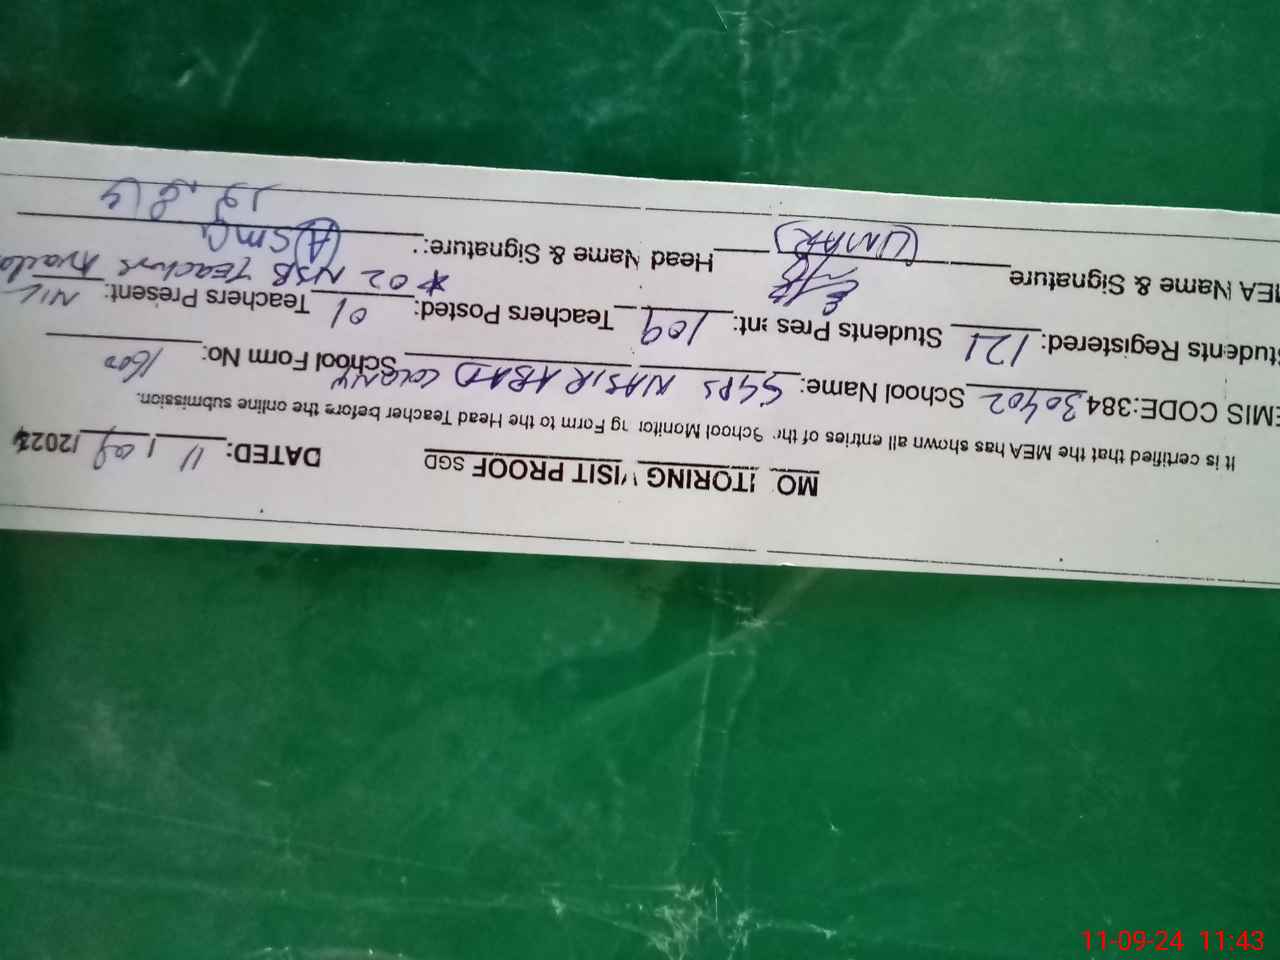 MO ITORING VISIT PROOF SGD DATED: 11/09/2024
It is certified that the MEA has shown all entries of the School Monitoring Form to the Head Teacher before the online submission.
EMIS CODE:384 30402 School Name: GGPS NASIR ABAD COLONY School Form No: 1600
Students Registered: 121 Students Present: 109 Teachers Posted: 01 Teachers Present: NIL
* 02 NSB Teachers
MEA Name & Signature (UMAR) Head Name & Signature:
11-09-24 11:43